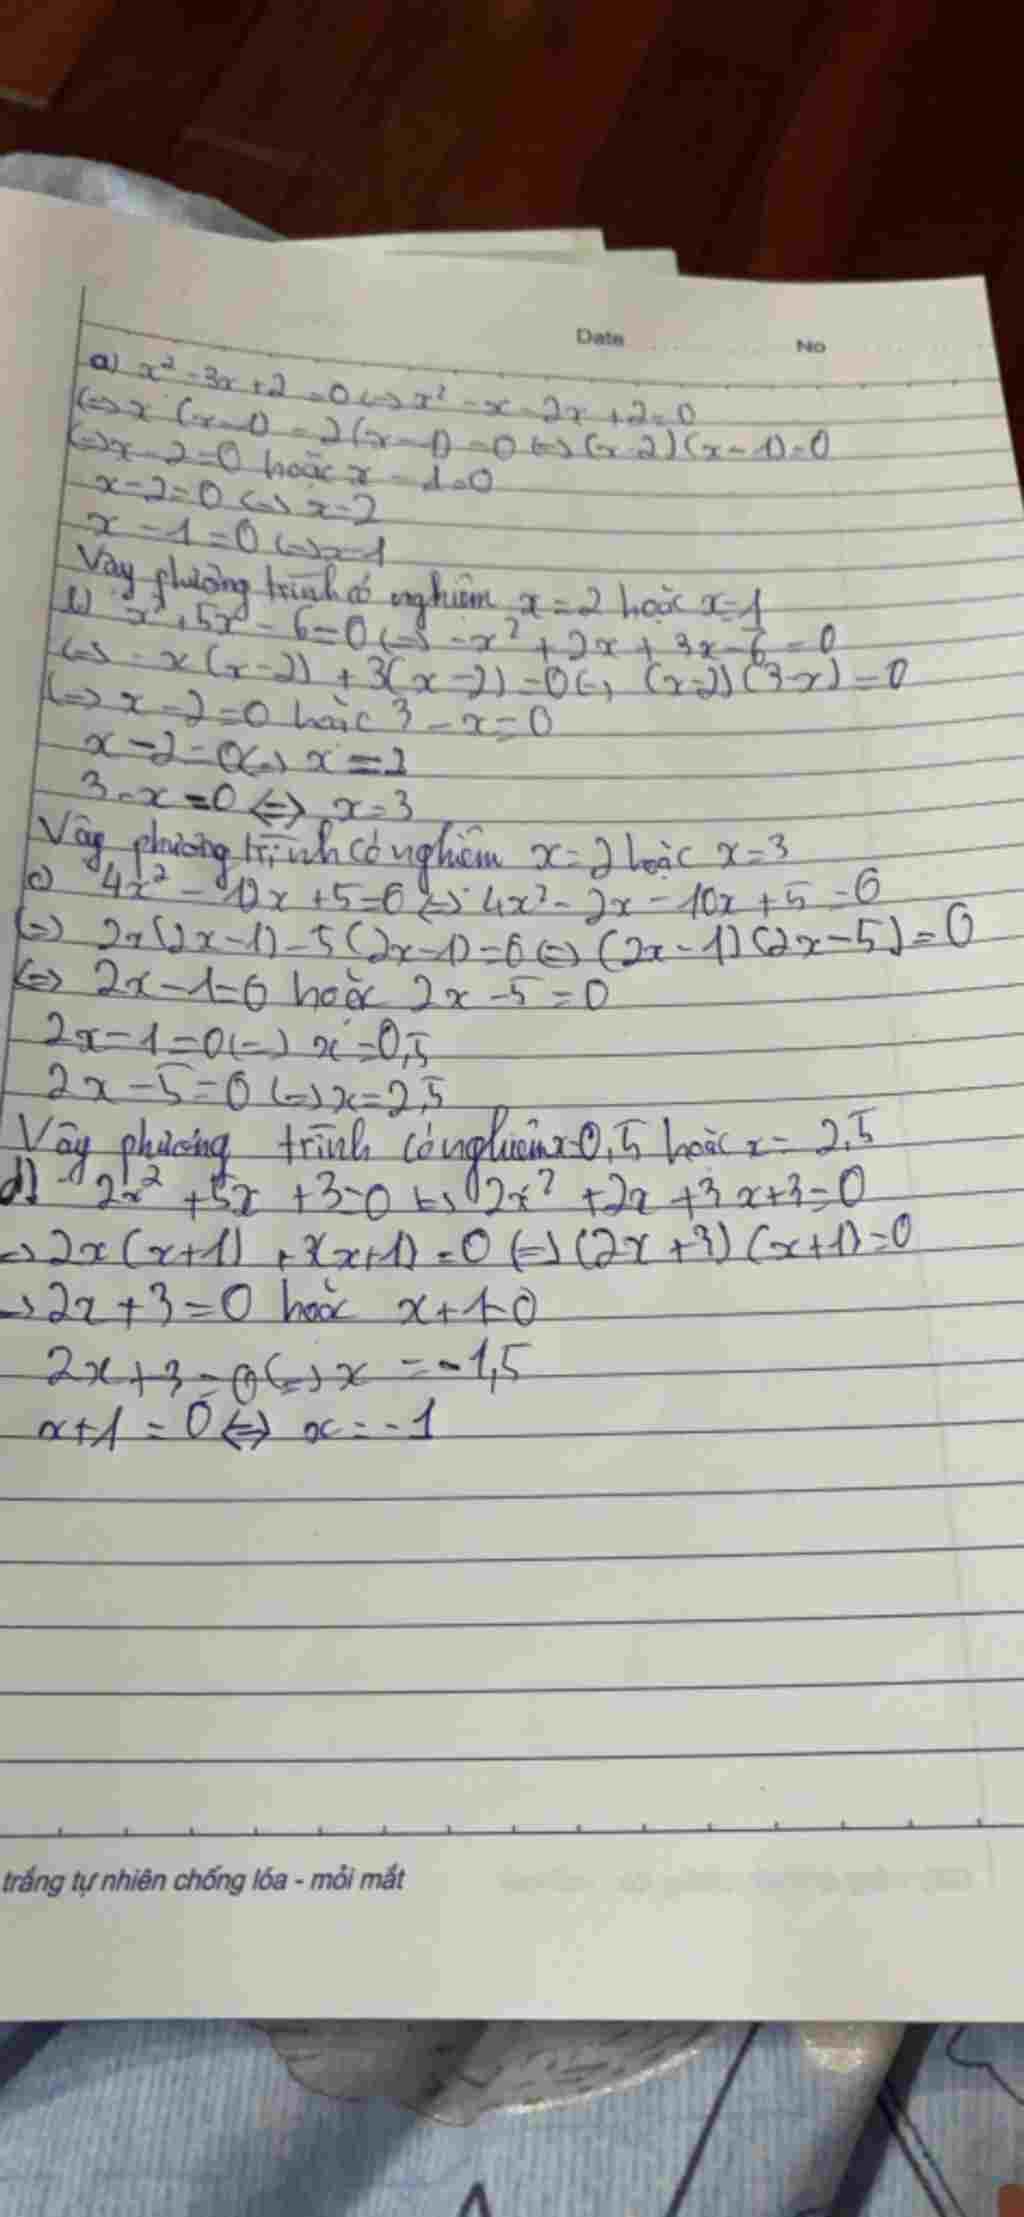 Date No
a) x² - 3x + 2 = 0 <=> x² - x - 2x + 2 = 0
<=> x (x-1) - 2(x-1) = 0 <=> (x-2)(x-1) = 0
<=> x - 2 = 0 hoặc x - 1 = 0
x - 2 = 0 <=> x = 2
x - 1 = 0 <=> x = 1
Vậy phương trình có nghiệm x = 2 hoặc x = 1
b) -x² + 5x - 6 = 0 <=> -x² + 2x + 3x - 6 = 0
<=> -x(x-2) + 3(x-2) = 0 <=> (x-2)(3-x) = 0
<=> x - 2 = 0 hoặc 3 - x = 0
x - 2 = 0 <=> x = 2
3 - x = 0 <=> x = 3
Vậy phương trình có nghiệm x = 2 hoặc x = 3
c) 4x² - 12x + 5 = 0 <=> 4x² - 2x - 10x + 5 = 0
<=> 2x(2x-1) - 5(2x-1) = 0 <=> (2x-1)(2x-5) = 0
<=> 2x - 1 = 0 hoặc 2x - 5 = 0
2x - 1 = 0 <=> x = 0,5
2x - 5 = 0 <=> x = 2,5
Vậy phương trình có nghiệm x = 0,5 hoặc x = 2,5
d) 2x² + 5x + 3 = 0 <=> 2x² + 2x + 3x + 3 = 0
=> 2x(x+1) + 3(x+1) = 0 <=> (2x+3)(x+1) = 0
=> 2x + 3 = 0 hoặc x + 1 = 0
2x + 3 = 0 <=> x = -1,5
x + 1 = 0 <=> x = -1
trắng tự nhiên chống lóa - mỏi mắt